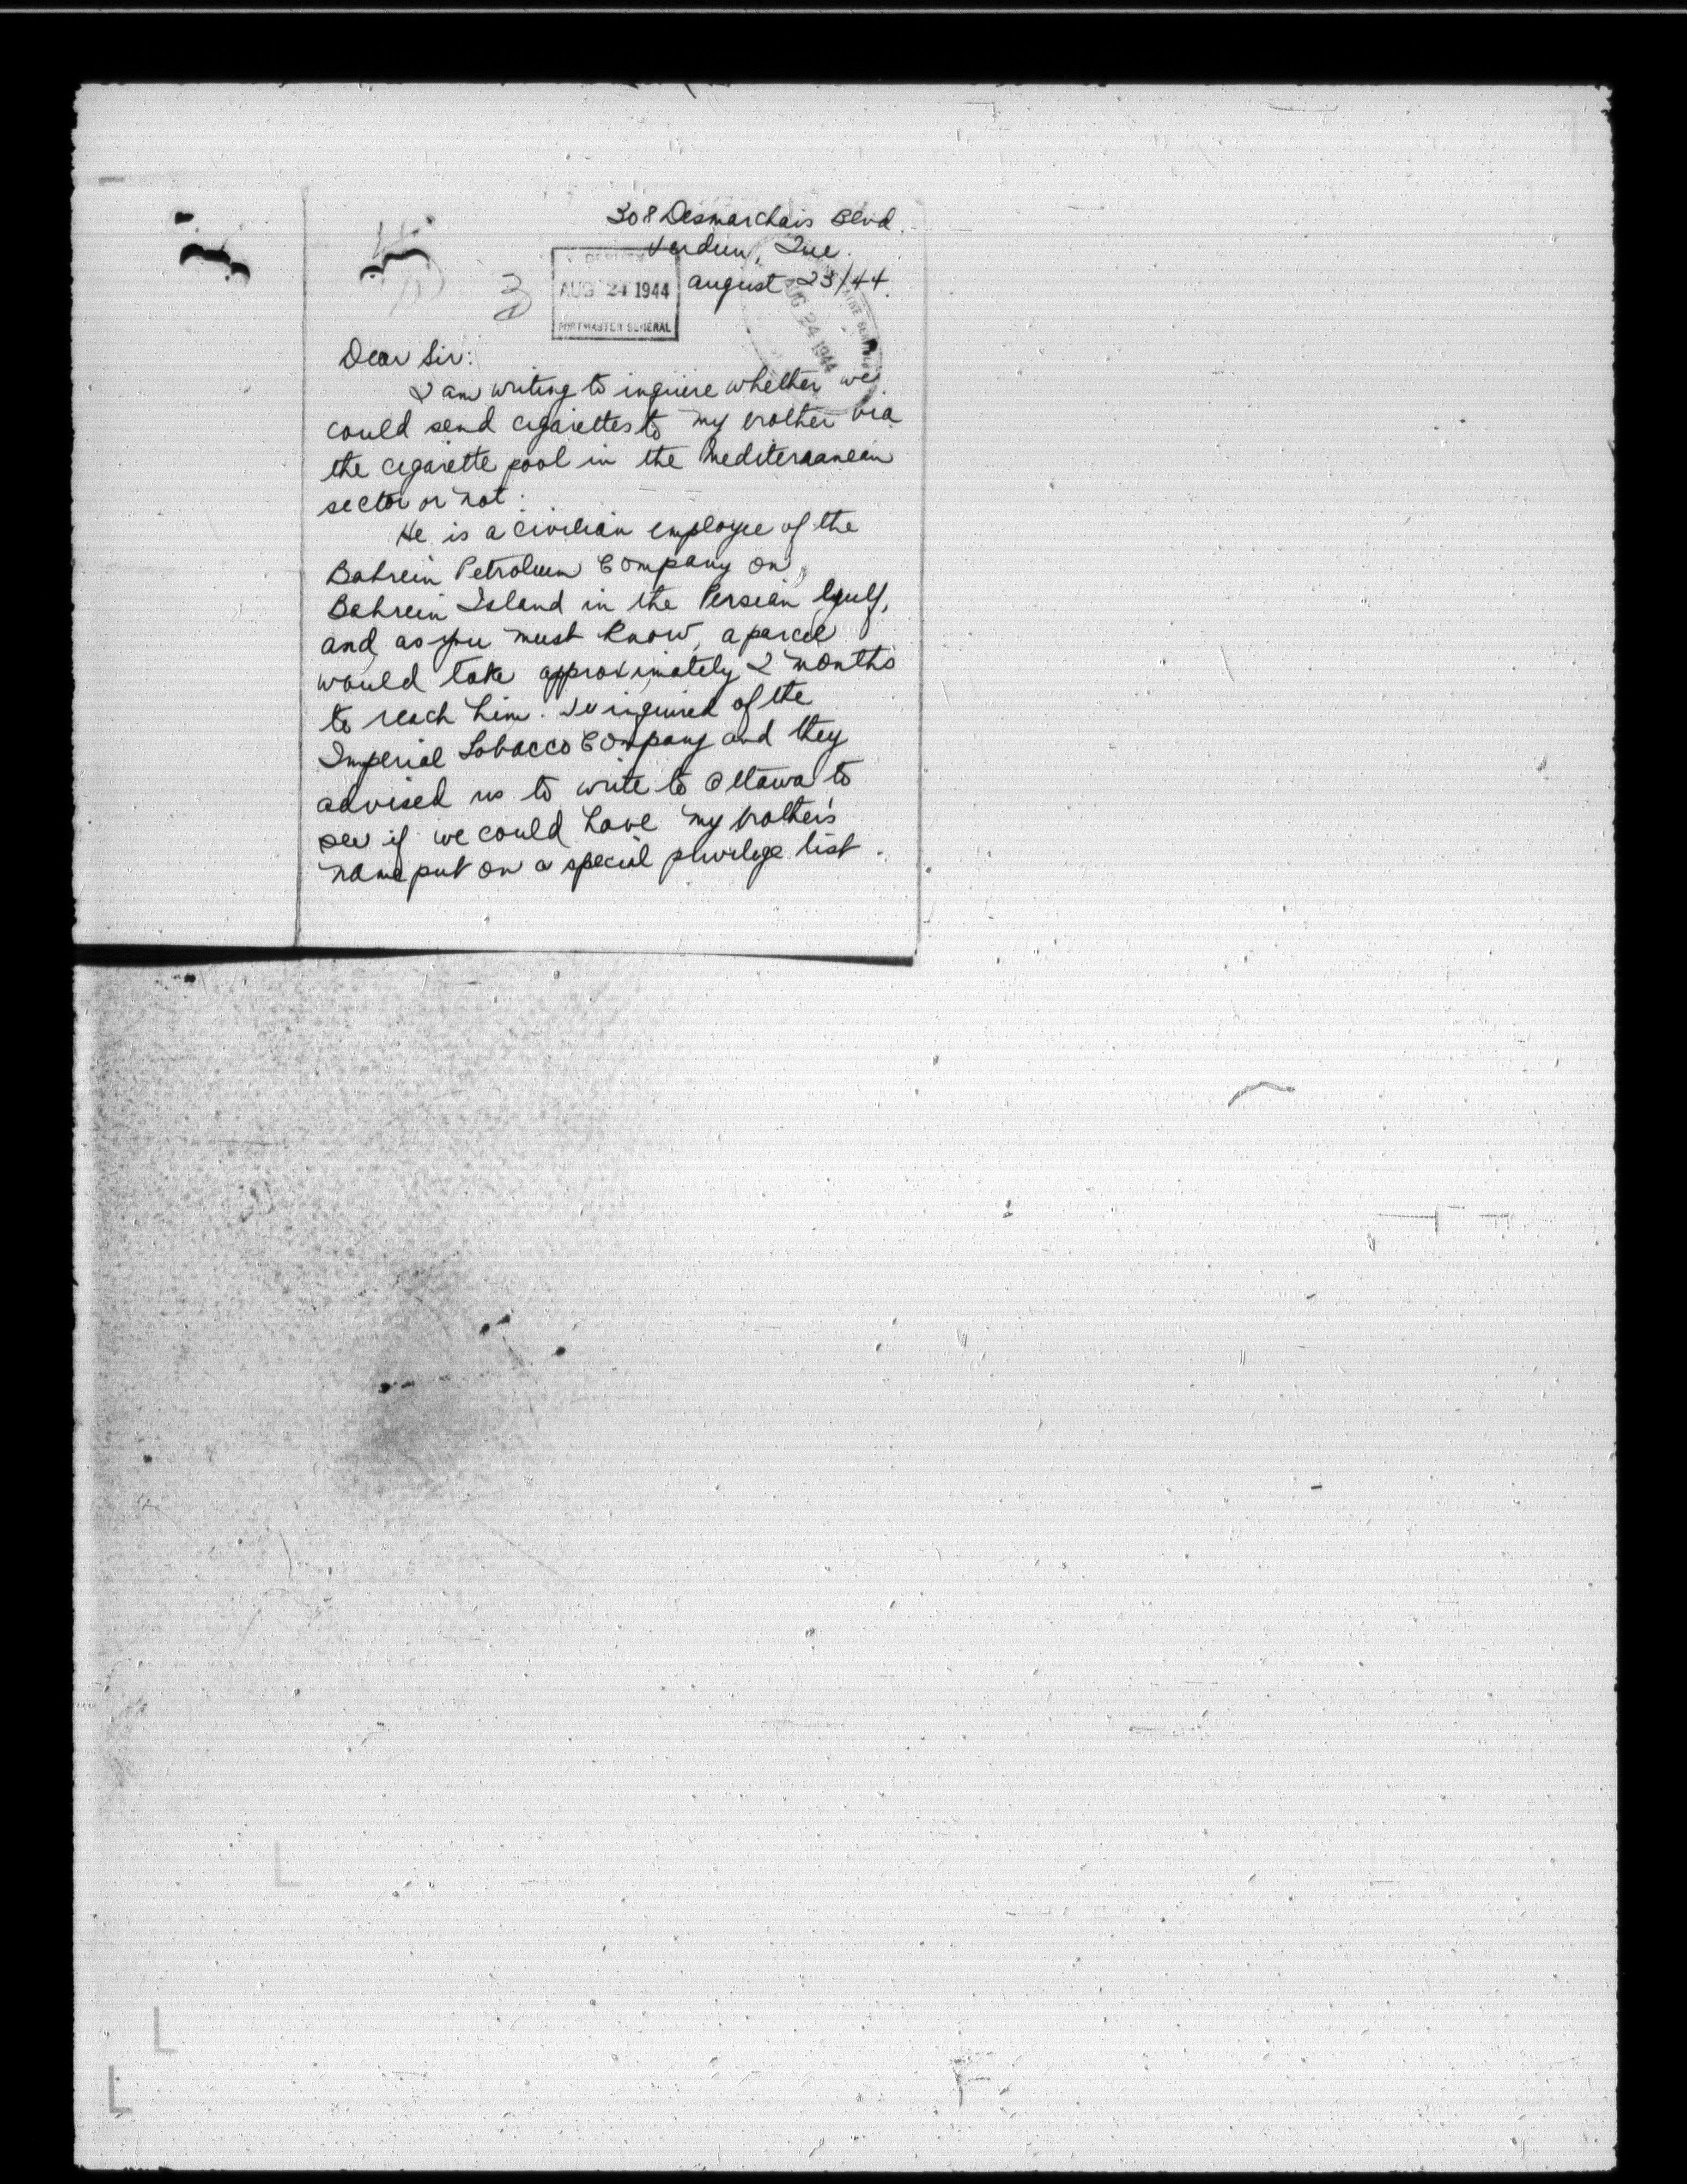 308 Desmarchais Blvd.
Verdun, Que.
August 23/44.
DEPUTY
AUG 24 1944
POSTMASTER GENERAL
AUG 24 1944
Dear Sir:
I am writing to inquire whether we
could send cigarettes to my brother via
the cigarette pool in the Mediterranean
sector or not.
He is a civilian employee of the
Bahrein Petroleum Company on
Bahrein Island in the Persian Gulf,
and, as you must know, a parcel
would take approximately 2 months
to reach him. We inquired of the
Imperial Tobacco Company and they
advised us to write to Ottawa to
see if we could have my brother's
name put on a special privilege list.